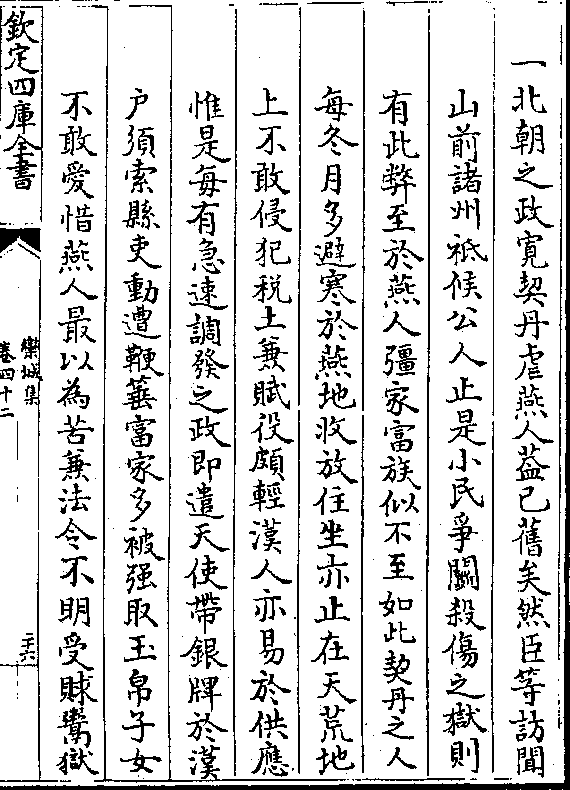 一北朝之政寛契丹虐燕人葢已舊矣然臣等訪聞
山前諸州祗候公人止是小民爭鬭殺傷之獄則
有此弊至於燕人彊家富族似不至如此契丹之人
每冬月多避寒於燕地牧放住坐亦止在天荒地
上不敢侵犯税土兼賦役頗輕漢人亦易於供應
惟是每有急速調發之政即遣天使帶銀牌於漢
户須索縣吏動遭鞭箠富家多被强取玉帛子女
不敢愛惜燕人最以為苦兼法令不明受賕鬻獄
欽定四庫全書
欒城集
卷四十二
二十六